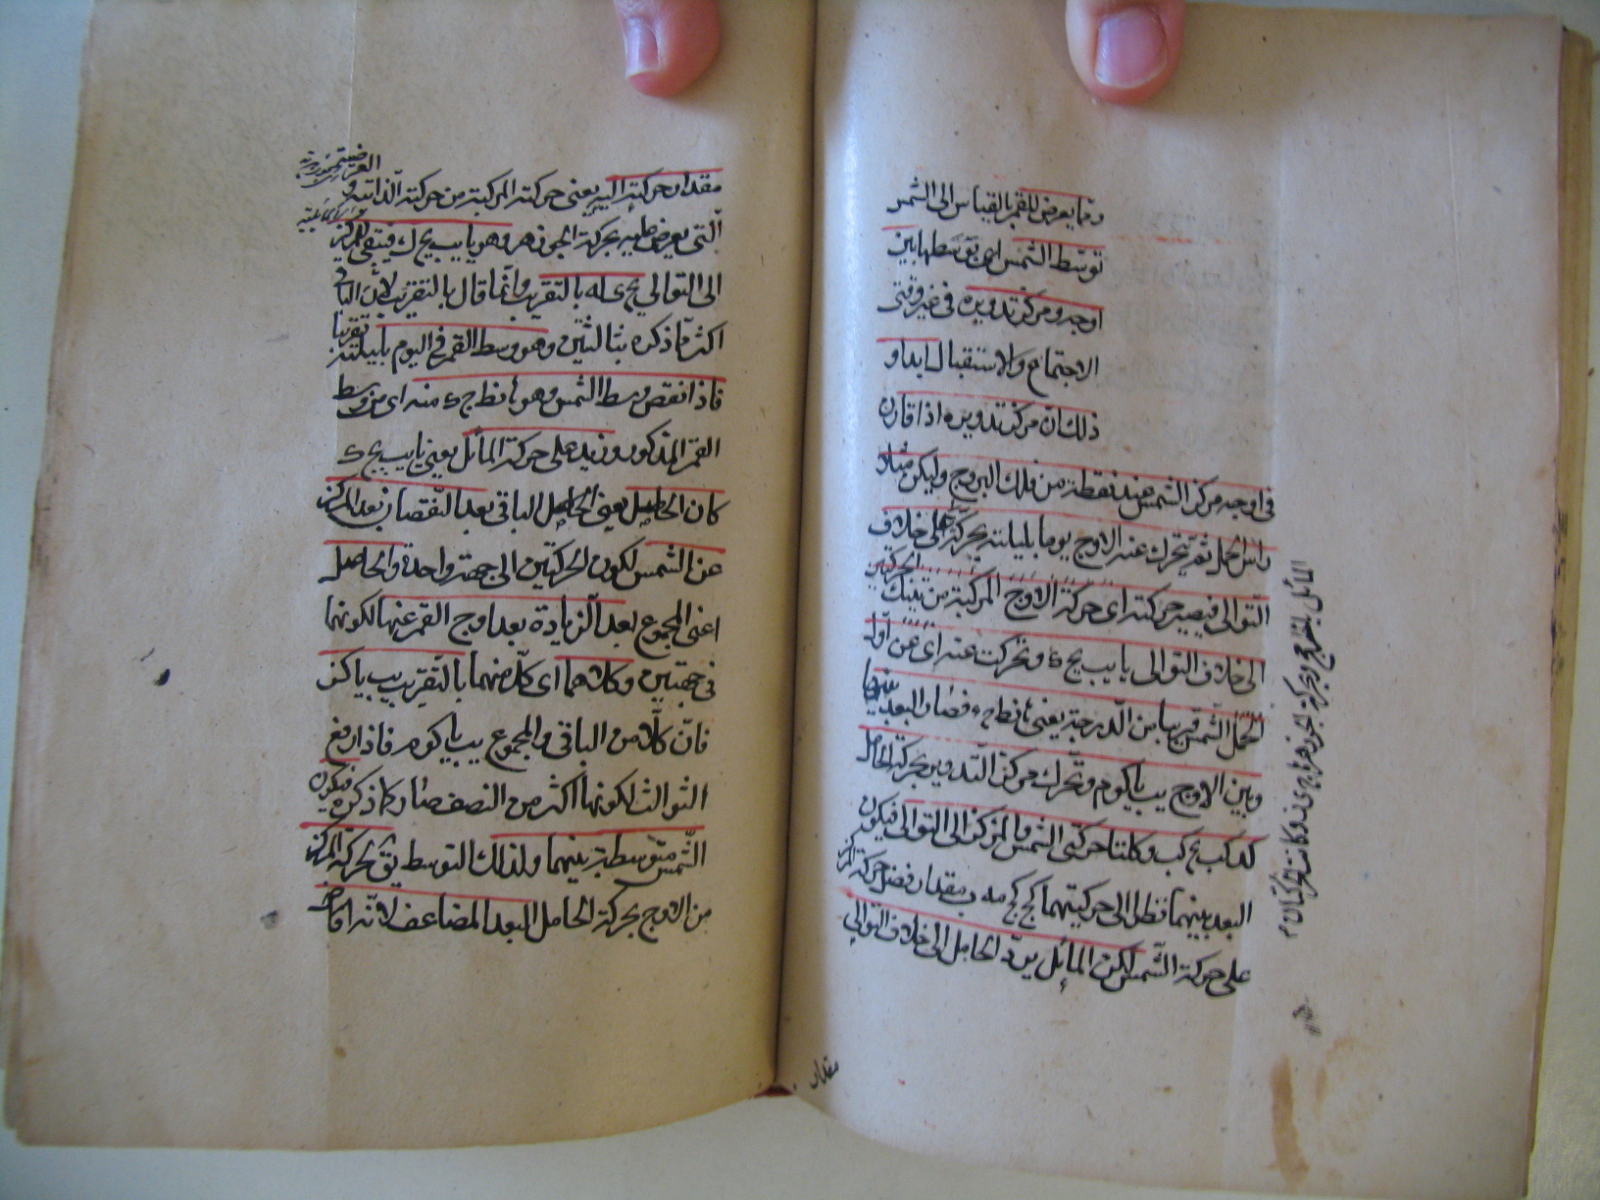 ومما يعرض للقمر بالقياس الى الشمس
توسّط الشمس اى توسطها بين
اوجه ومركز تدويره فى غير وقتى
الاجتماع والاستقبال ابدا و
ذلك ان مركز تدويره اذا قارن
فى اوجه مركز الشمس عند نقطة من فلك البروج وليكن مثلا
راس الحمل ثم تحرك عنه الاوج يوما بليلته بحركة على خلاف
التوالى فيصير حركته اى حركة الاوج المركبة من تينك الحركتين
الى خلاف التوالى يا يب يح وتحركت عنه اى عن اول
الحمل الشمس قريبا من الدرجة يعنى فصار البعد بينها
وبين الاوج يب يا كو م وتحرك مركز التدوير بحركة الحامل
كد كب نج كب وكلتا حركتى الشمس والمركز الى التوالى فيكون
البعد بينهما فضل احدى حركتيهما كج كج مه ب مقدار فضل حركة المركز
على حركة الشمس لكن المائل يردّ الحامل الى خلاف التوالى
مقدار
مقدار حركته اليه يعنى حركته المركبة من حركته الذاتية و العرضية
الّتى يعرض عليه بحركة الجوزهر وهو يا يب يح فيبقى للمركز
الى التوالى يح ى له بالتقريب وانما قال بالتقريب لان الباقى
اكثر مما ذكره بثالثتين وهو وسط القمر فى اليوم بليلته تقريبا
فاذا نقص وسط الشمس وهو منه اى من وسط
القمر المذكور وزيد على حركة المائل يعنى يا يب يح
كان الحاصل يعنى الحاصل الباقى بعد النقصان بعد المركز
عن الشمس لكون الحركتين الى جهة واحدة والحاصل
اعنى المجموع بعد الزيادة بعد اوج القمر عنها لكونهما
فى جهتين وكلاهما اى كل منهما بالتقريب يب يا كز
فان كلا من الباقى والمجموع يب يا كو م فاذا رفع
الثوالث لكونها اكثر من النصف صار كما ذكره فيكون
الشمس متوسطة بينهما ولذلك التوسط يق لحركة المركز
من الاوج بحركة الحامل البعد المضاعف لانه